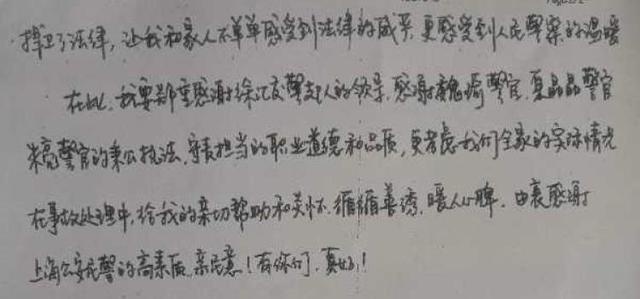 捍卫了法律，让我和家人不单单感受到法律的威严，更感受到人民警察的温暖
在此，我要郑重感谢徐汇交警支队的领导，感谢魏 警官，夏晶晶警官
朱亮警官的秉公执法，守责担当的职业道德和品质，更考虑我们全家的实际情况
在事故处理中，给我的亲切帮助和关怀，循循善诱，暖人心脾，由衷感谢
上海公安民警的高素质，亲民意！有你们，真好！